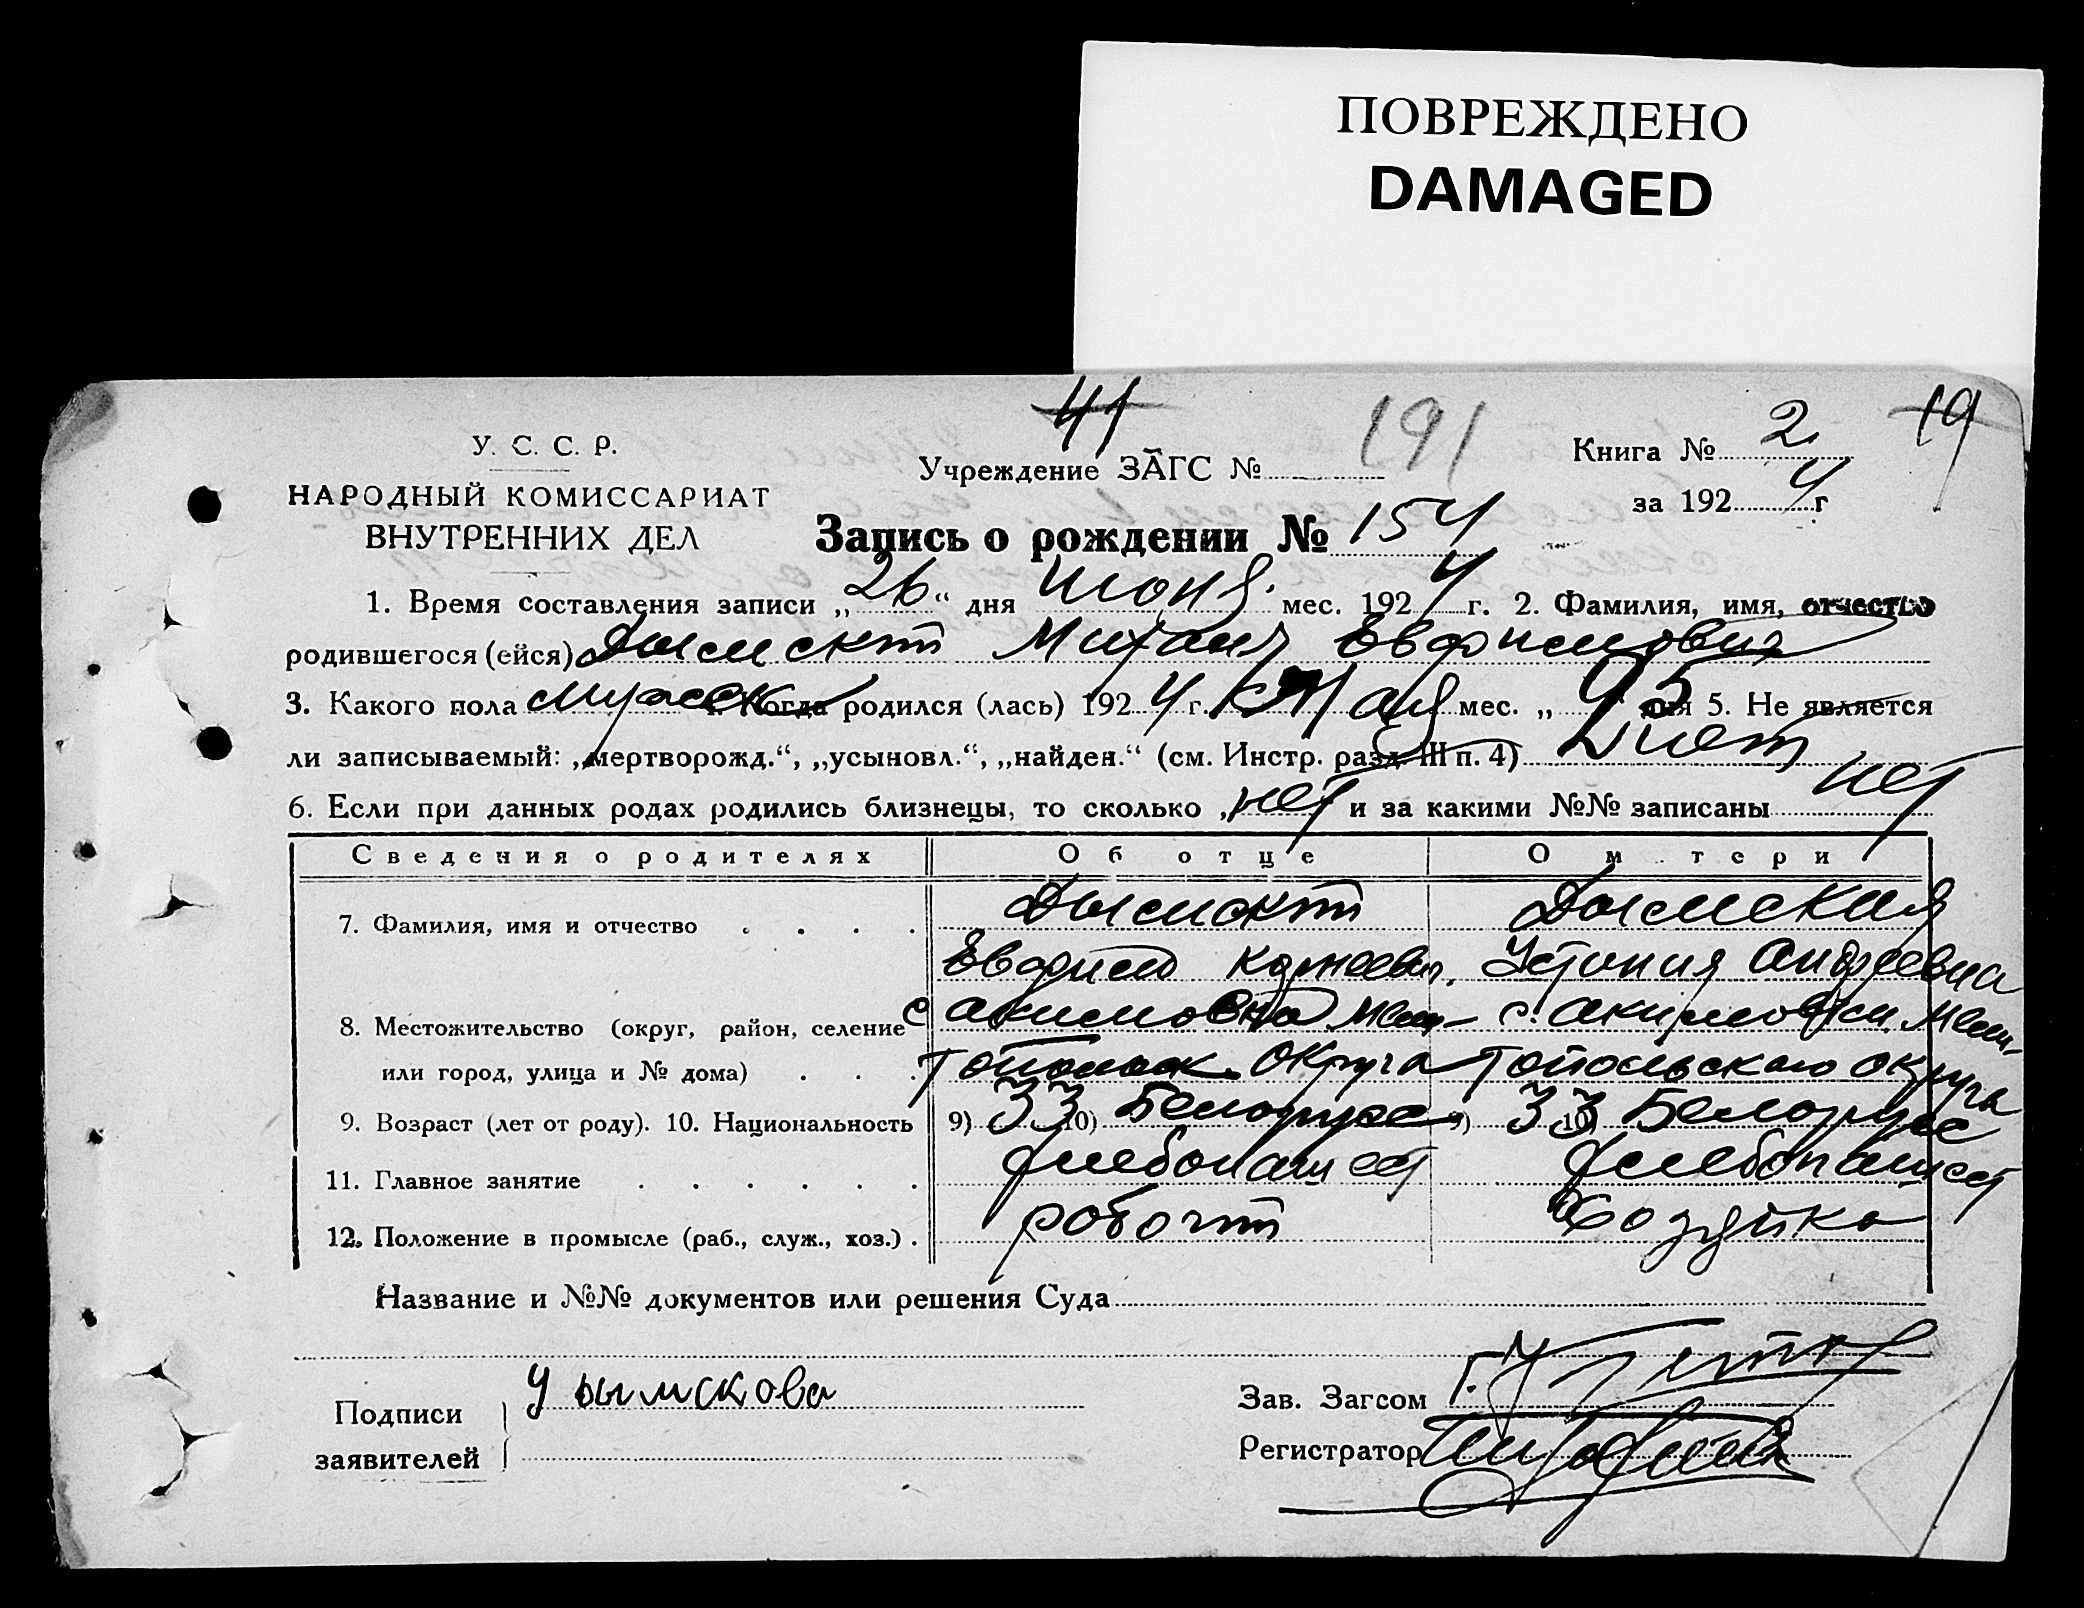 ПОВРЕЖДЕНО
DAMAGED
41
191
19
У. С. С. Р.
НАРОДНЫЙ КОМИССАРИАТ
ВНУТРЕННИХ ДЕЛ
Учреждение ЗАГС №
Книга № 2
за 1924 г
Запись о рождении № 154
1. Время составления записи „26“ дня Июня мес. 1924 г. 2. Фамилия, имя, отчество
родившегося (ейся) Дымский Михаил Евфимович
3. Какого пола мужск 4. Когда родился (лась) 1924 г. Мая мес. „ дня 5. Не является
ли записываемый: „мертворожд.“, „усыновл.“, „найден.“ (см. Инстр. разд. III п. 4)
6. Если при данных родах родились близнецы, то сколько нет и за какими №№ записаны нет
Сведения о родителях Об отце О м тери
7. Фамилия, имя и отчество Дымский Дымская
Евфим Устиния Андреевна
8. Местожительство (округ, район, селение с Акимовка Мели- с. Акимовки Мели-
или город, улица и № дома) топольск. округа топольскаго округа
9. Возраст (лет от роду). 10. Национальность 9) 33 10) Белорусс 9) 33 10) Белорусс
11. Главное занятие хлебопашест хлебопашест
12. Положение в промысле (раб., служ., хоз.) робочий хозяйка
Название и №№ документов или решения Суда
Подписи
заявителей
У Дымскова
Зав. Загсом
Регистратор